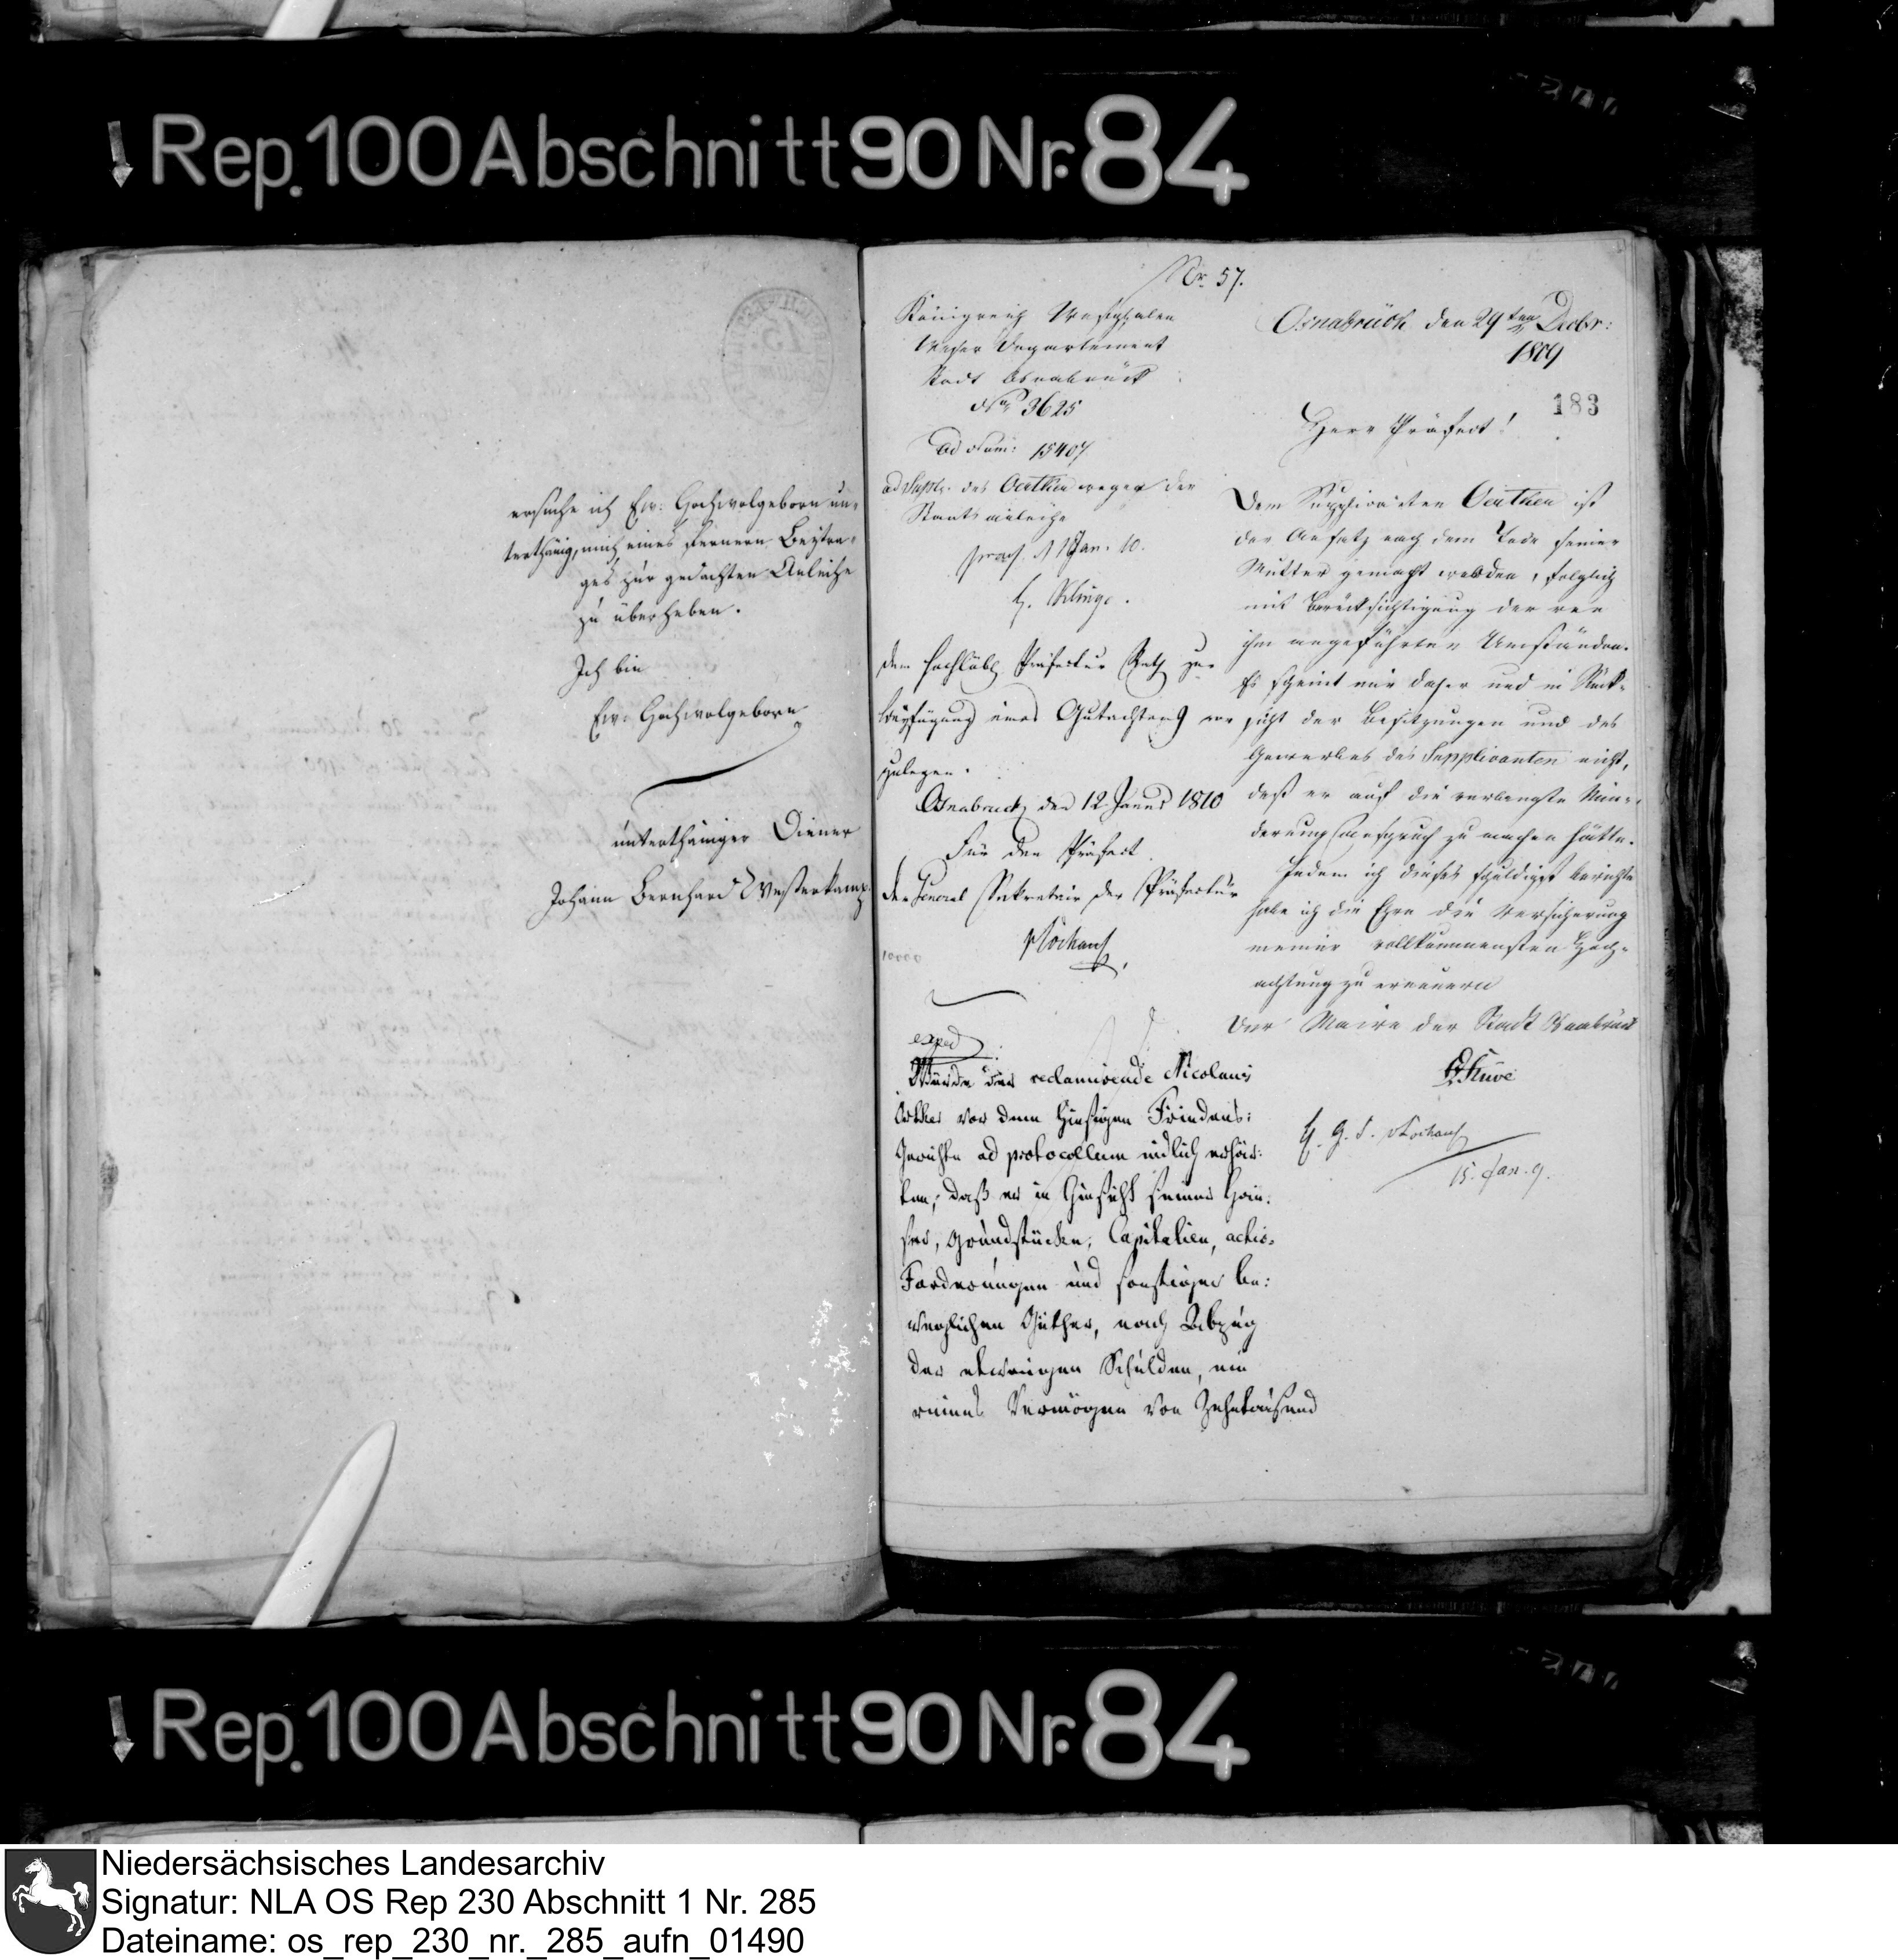 Rep. 100 Abschnitt 90 Nr. 84
ersuche ich Ew: Hochwolgeborn un-
terthänig, mich eines fernern Beytra-
ges zur gedachten Anleihe
zu überheben.
Ich bin
Ew: Hochwolgeborn
unterthäniger Diener
Johann Bernhard Westerkamp.
No. 57.
Königreich Westphalen
Weser Departement
Stadt Osnabrück
No 3625
ad Num: 15407
ad Suppl. des Oerthen wegen der
Staats anleihe
praes. Jan. 10.
Dem hochlöbl Präfectur Rath zur
Beyfügung eines Gutachtens vor
zulegen.
Osnabruck den 12 Januar 1810
Für den Präfect
der General Sekretair der Präfectur
10000
exped
Würde der reclamirende Nicolaus
vor dem hiesigen Friedens:
Gerichte ad protocollum eidlich erhär:
ten, daß er in Hinsicht seiner Häu:
ser, Grundstücke, Capitalien, activ-
Forderungen und sonstigen be:
weglichen Güther, nach Abzug
der etwaigen Schulden, ein
reines Vermögen von Zehntausend
Osnabrück den 29ten Decbr:
1809
183
Herr Präfect!
Dem Supplicanten Oerthen ist
der Ansatz nach dem Tode seiner
Mutter gemacht worden, folglich
mit Berücksichtigung der von
ihm angeführten Umständen.
Es scheint mir daher und in Rück-
sicht der Besitzungen und des
Gewerbes des Supplicanten nicht,
daß er auf die verlangte Min-
derung Anspruch zu machen hätte.
Indem ich dieses schuldigst berichte
habe ich die Ehre die Versicherung
meiner vollkommensten Hoch-
achtung zu erneuern
Der Maire der Stadt Osnabrück
Stüve
15. Jan. 9.
Rep. 100 Abschnitt 90 Nr. 84
Niedersächsisches Landesarchiv
Signatur: NLA OS Rep 230 Abschnitt 1 Nr. 285
Dateiname: os_rep_230_nr._285_aufn_01490